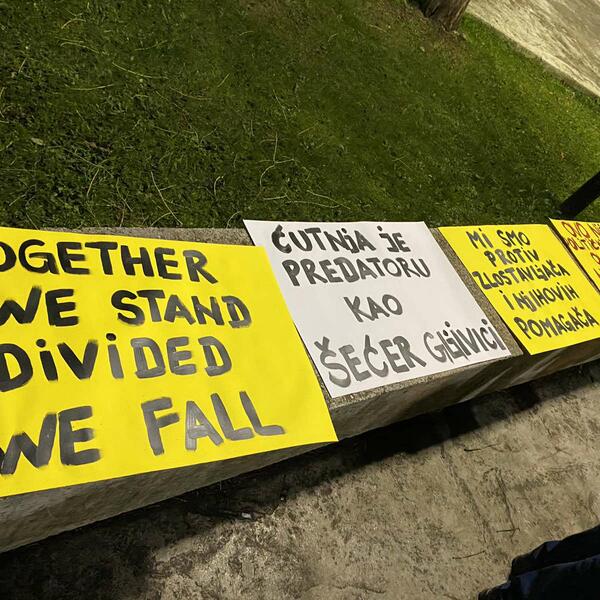 OGETHER
WE STAND
DIVIDED
WE FALL
ĆUTNJA JE
PREDATORU
KAO
ŠEĆER GLJIVICI
MI SMO
PROTIV
ZLOSTAVLJAČA
I NJIHOVIH
POMAGAČA